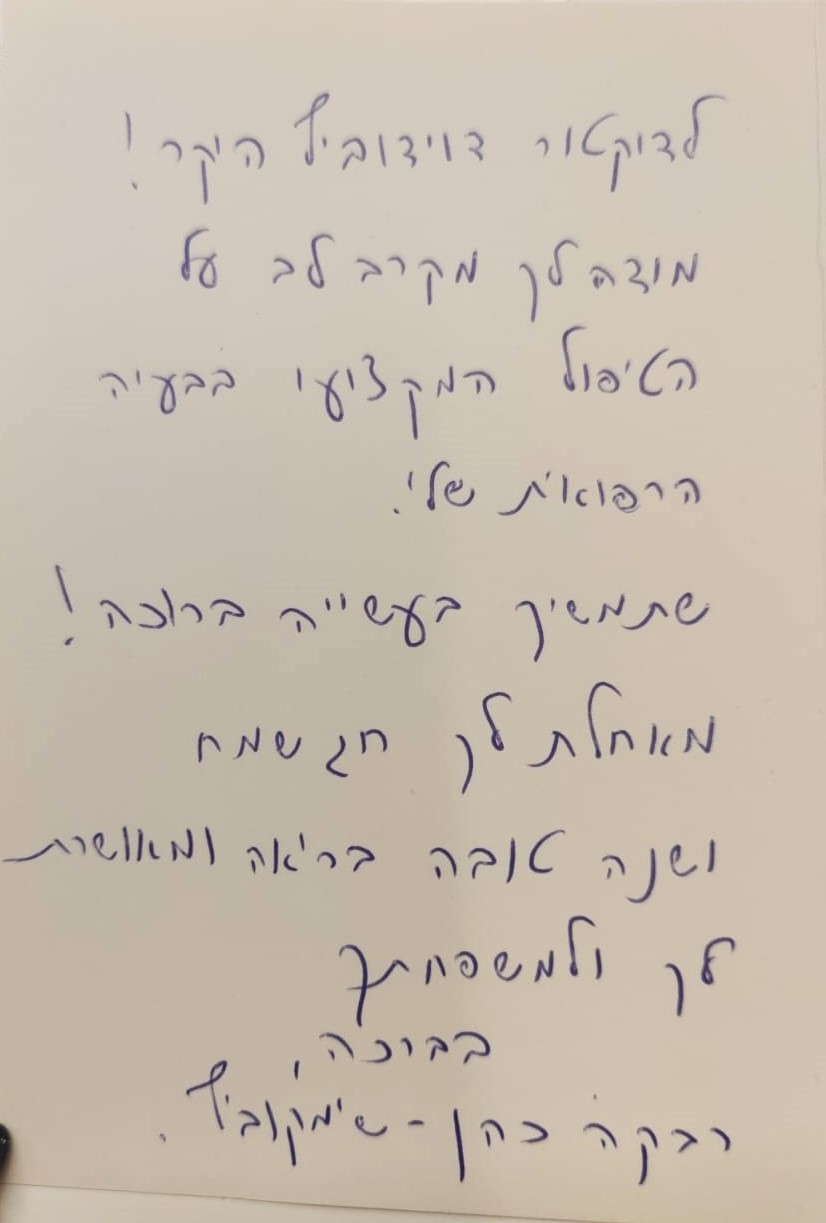 לדוקטור דוידוביץ היקר!
מודה לך מקרב לב על
הטיפול המקצועי בבעיה
הרפואית שלי.
שתמשיך בעשייה ברוכה!
מאחלת לך חג שמח
ושנה טובה בריאה ומאושרת
לך ולמשפחתך
בברכה,
רבקה כהן - שימקוביץ.